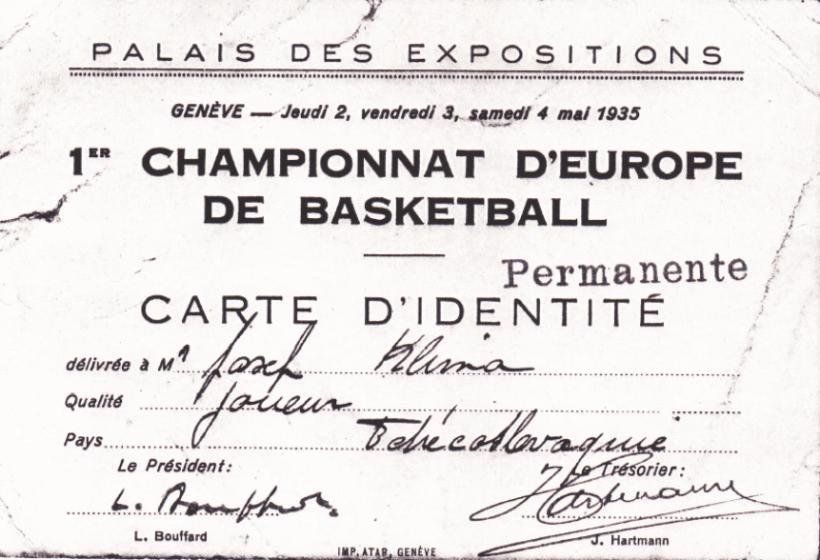 PALAIS DES EXPOSITIONS
GENÈVE — Jeudi 2, vendredi 3, samedi 4 mai 1935
1ER CHAMPIONNAT D'EUROPE
DE BASKETBALL
Permanente
CARTE D'IDENTITÉ
délivrée à Mr Josef Klima
Qualité Joueur
Pays Tchécoslovaquie
Le Président: Le Trésorier:
L. Bouffard Hartmann
L. Bouffard J. Hartmann
IMP. ATAR, GENÈVE